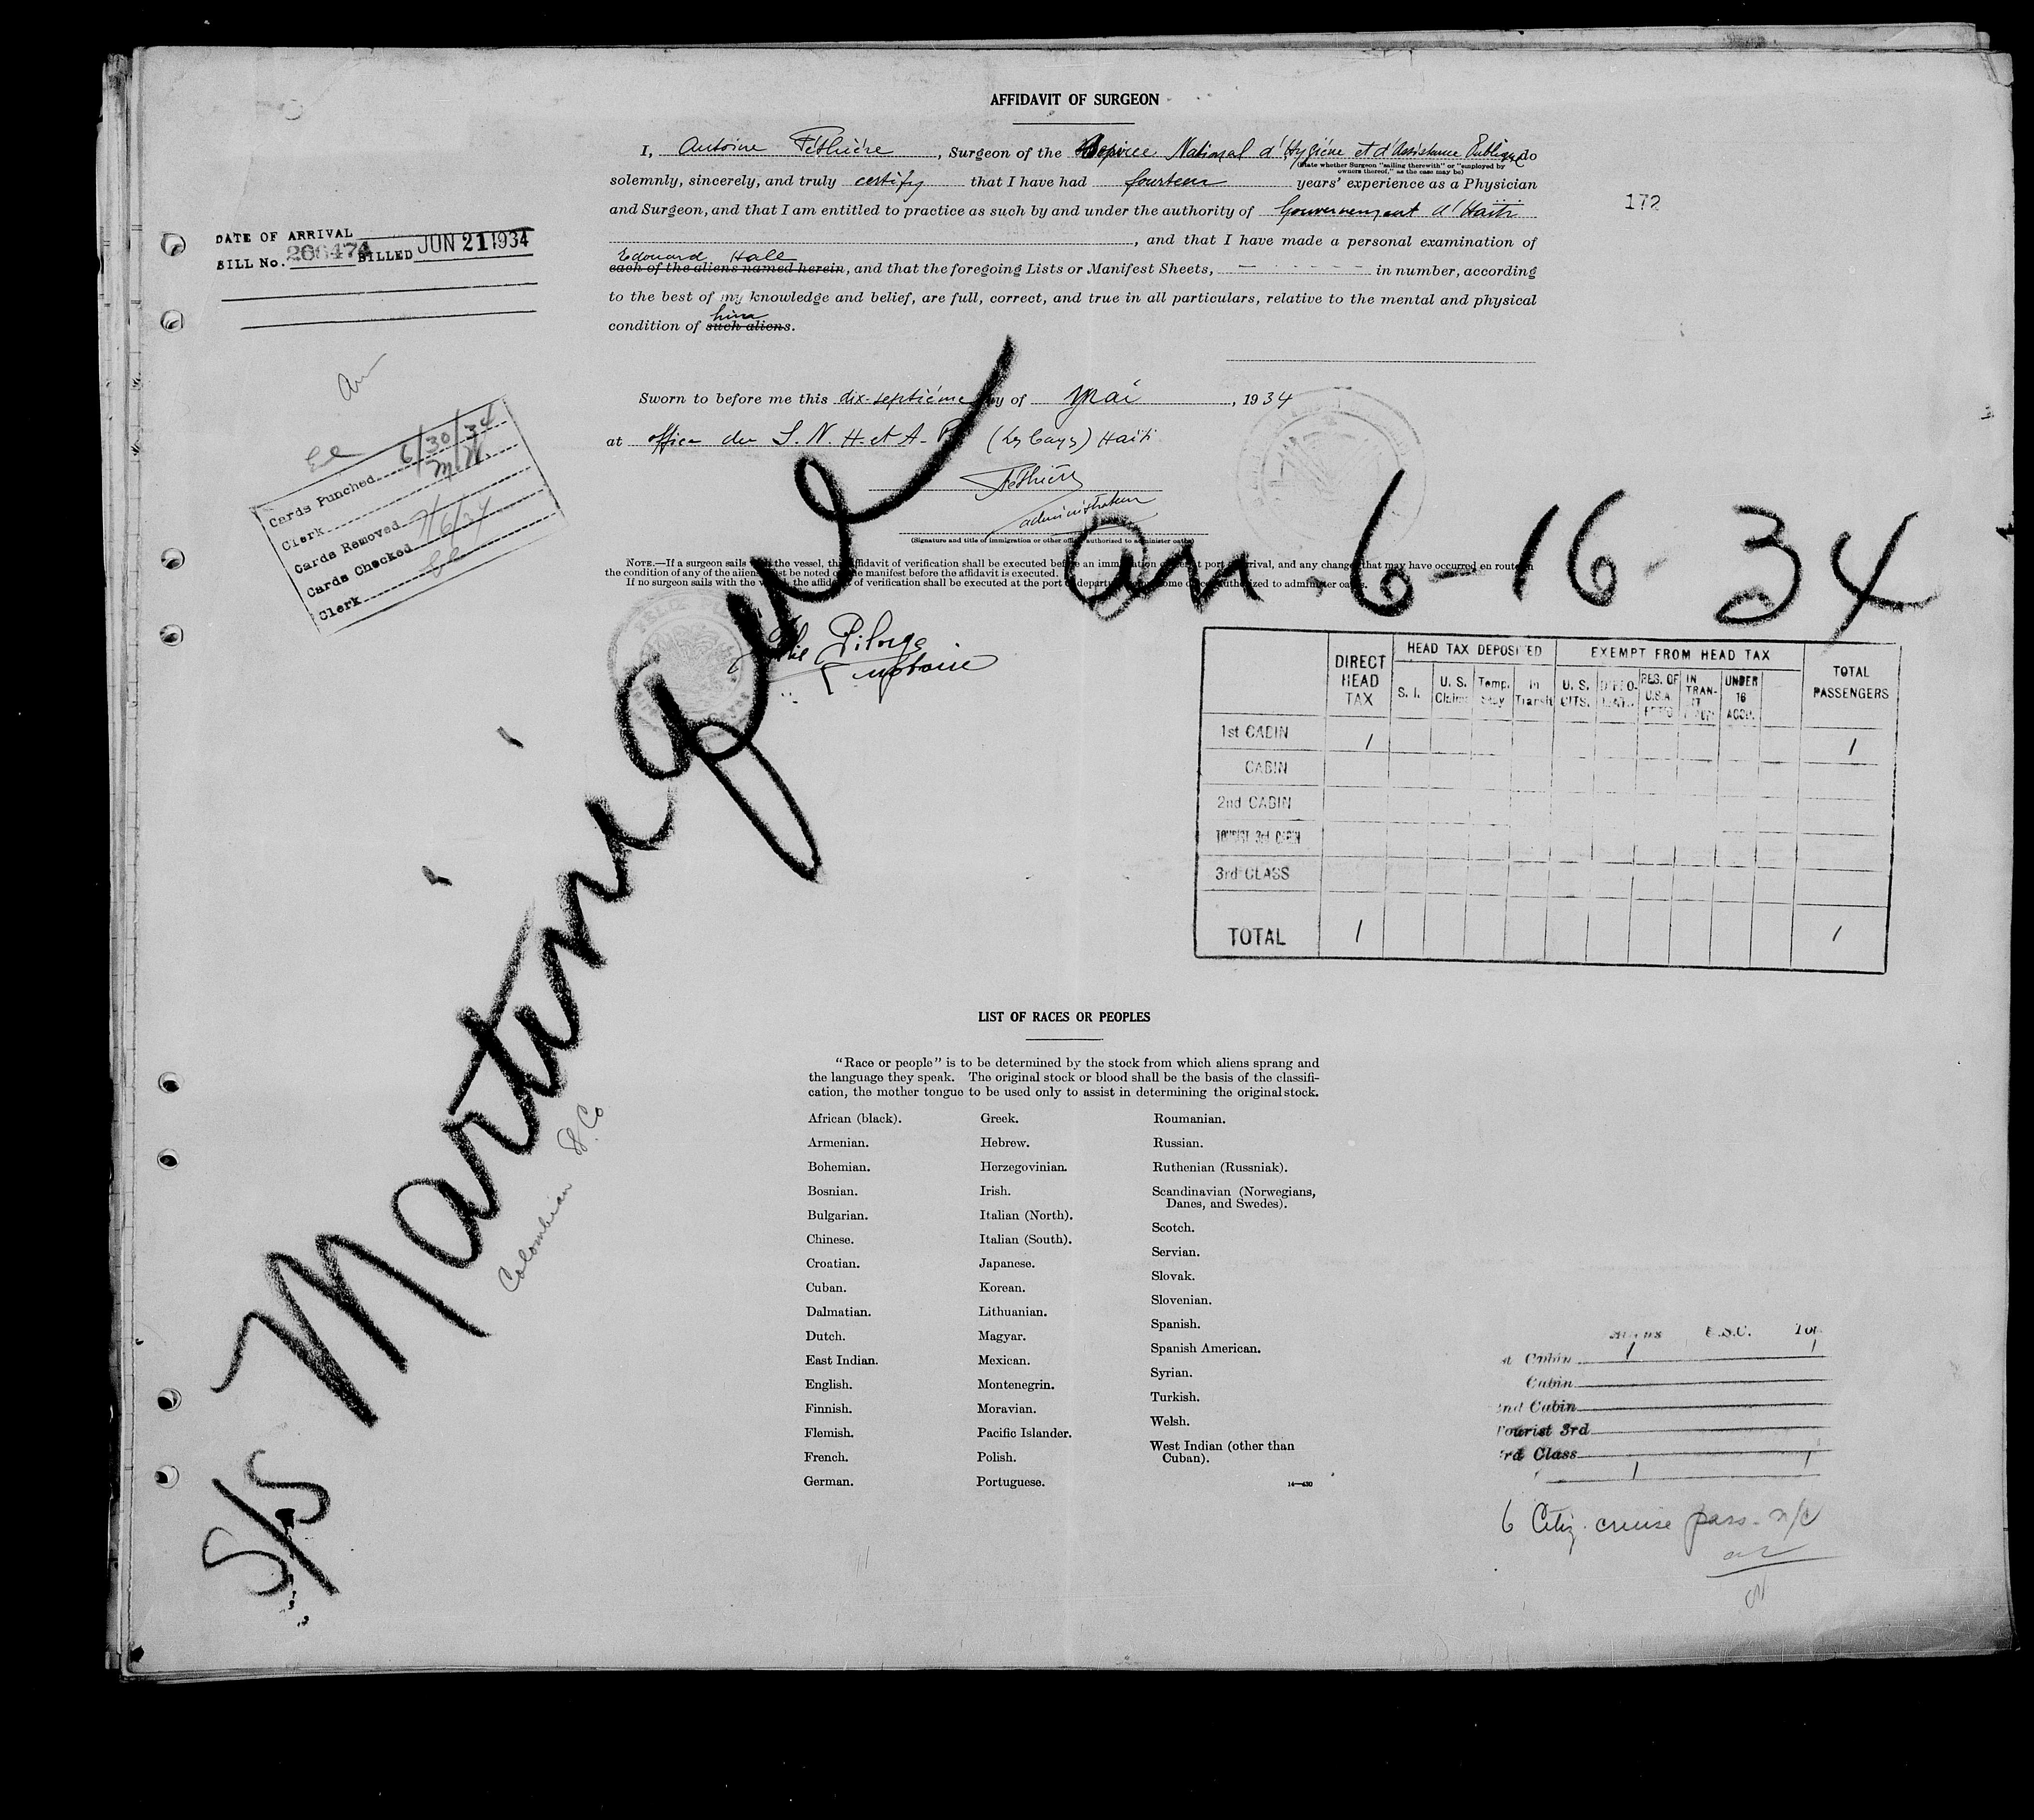 AFFIDAVIT OF SURGEON
I, Antoine Féthière, Surgeon of the Service National d'Hygiène et d'Assistance Publique do
(State whether Surgeon "sailing therewith" or "employed by
owners thereof," as the case may be)
solemnly, sincerely, and truly certify that I have had fourteen years' experience as a Physician
and Surgeon, and that I am entitled to practice as such by and under the authority of Gouvernement d'Haïti
, and that I have made a personal examination of
Edouard Hall
each of the aliens named herein, and that the foregoing Lists or Manifest Sheets, in number, according
to the best of my knowledge and belief, are full, correct, and true in all particulars, relative to the mental and physical
him
condition of such aliens.
172
DATE OF ARRIVAL
BILL No. 206474 BILLED JUN 21 1934
Sworn to before me this dix-septième day of Mai, 1934
at office du S. N. H. et A. P. (Les Cayes) Haïti
Féthière
administrateur
(Signature and title of immigration or other officer authorized to administer oaths)
Cards Punched 6/30/34
Clerk
Cards Removed
Cards Checked 7/6/34
Clerk
NOTE.—If a surgeon sails with the vessel, this affidavit of verification shall be executed before an immigration officer at port of arrival, and any changes that may have occurred en route in
the condition of any of the aliens must be noted on the manifest before the affidavit is executed.
If no surgeon sails with the vessel, the affidavit of verification shall be executed at the port of departure before some officer authorized to administer oaths.
Pilorge
notaire
S/S Martinique
arr. 6-16-34
Colombian S.S. Co
DIRECT HEAD TAX
HEAD TAX DEPOSITED
EXEMPT FROM HEAD TAX
TOTAL PASSENGERS
S. I. U. S. Claims Temp. Stay In Transit U. S. CITS. DIPLO-MATS RES. OF U.S.A. IN TRAN-SIT UNDER 16 ACCM.
1st CABIN 1 1
CABIN
2nd CABIN
TOURIST 3rd CABIN
3rd CLASS
TOTAL 1 1
LIST OF RACES OR PEOPLES
"Race or people" is to be determined by the stock from which aliens sprang and
the language they speak. The original stock or blood shall be the basis of the classifi-
cation, the mother tongue to be used only to assist in determining the original stock.
African (black).
Armenian.
Bohemian.
Bosnian.
Bulgarian.
Chinese.
Croatian.
Cuban.
Dalmatian.
Dutch.
East Indian.
English.
Finnish.
Flemish.
French.
German.
Greek.
Hebrew.
Herzegovinian.
Irish.
Italian (North).
Italian (South).
Japanese.
Korean.
Lithuanian.
Magyar.
Mexican.
Montenegrin.
Moravian.
Pacific Islander.
Polish.
Portuguese.
Roumanian.
Russian.
Ruthenian (Russniak).
Scandinavian (Norwegians,
Danes, and Swedes).
Scotch.
Servian.
Slovak.
Slovenian.
Spanish.
Spanish American.
Syrian.
Turkish.
Welsh.
West Indian (other than
Cuban).
14—430
Aliens U.S.C. Tot.
st Cabin 1 1
Cabin
2nd Cabin
Tourist 3rd
3rd Class
1 1
6 Citiz. cruise pass. n/c